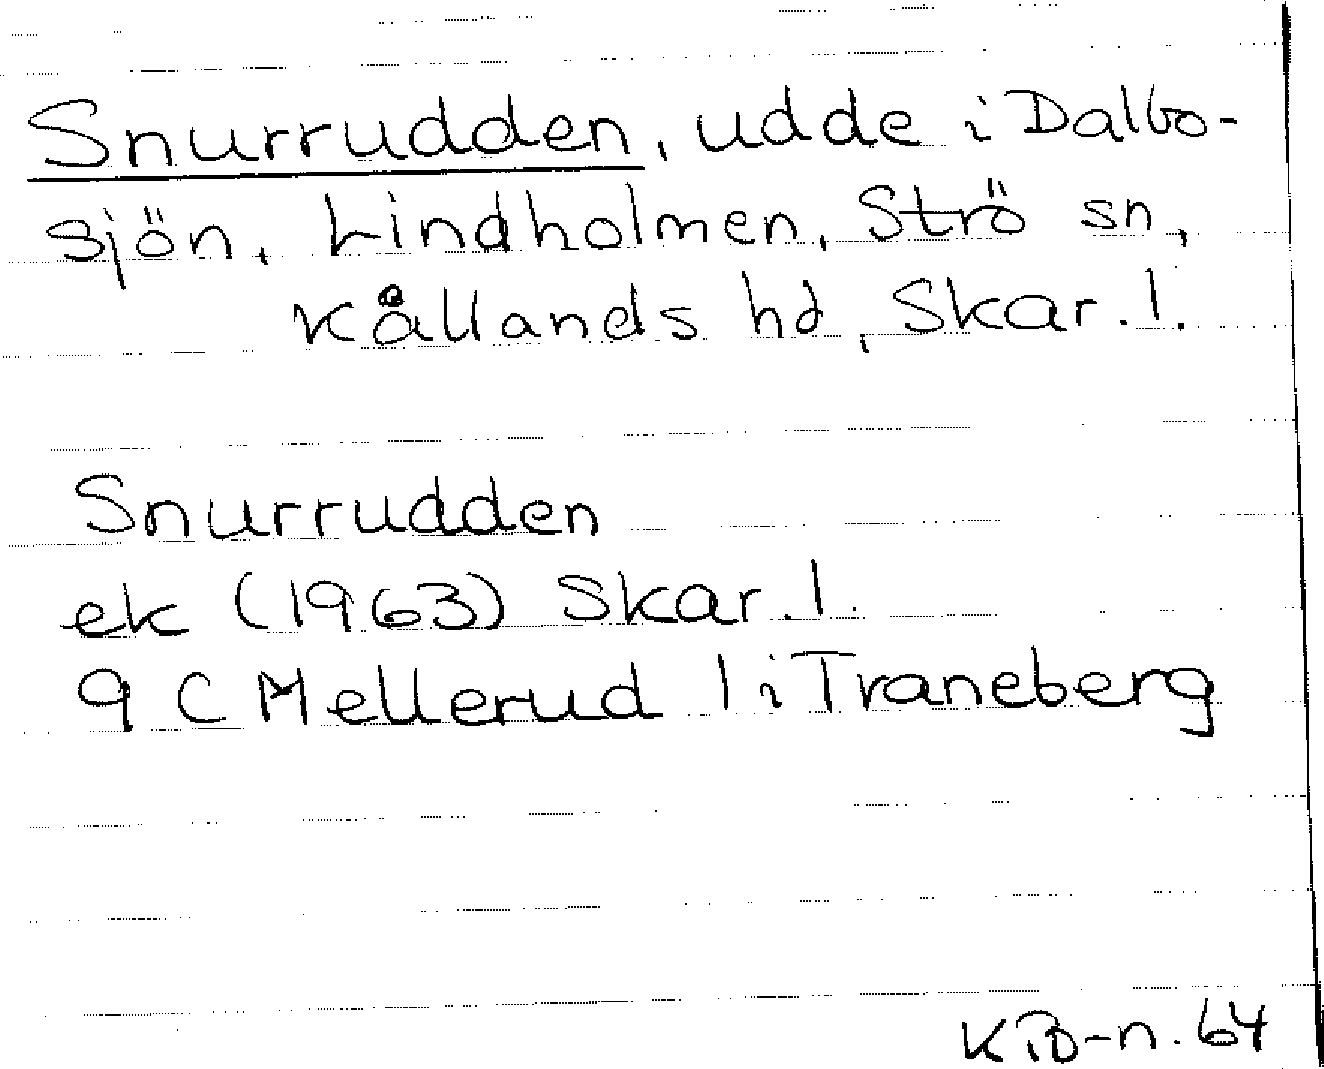 Snurrudden, udde i Dalbo-
sjön, Lindholmen, Strö sn,
Kållands hd, Skar. l.
Snurrudden
ek (1963) Skar. l.
9 C Mellerud l i Traneberg
KB-n. 64